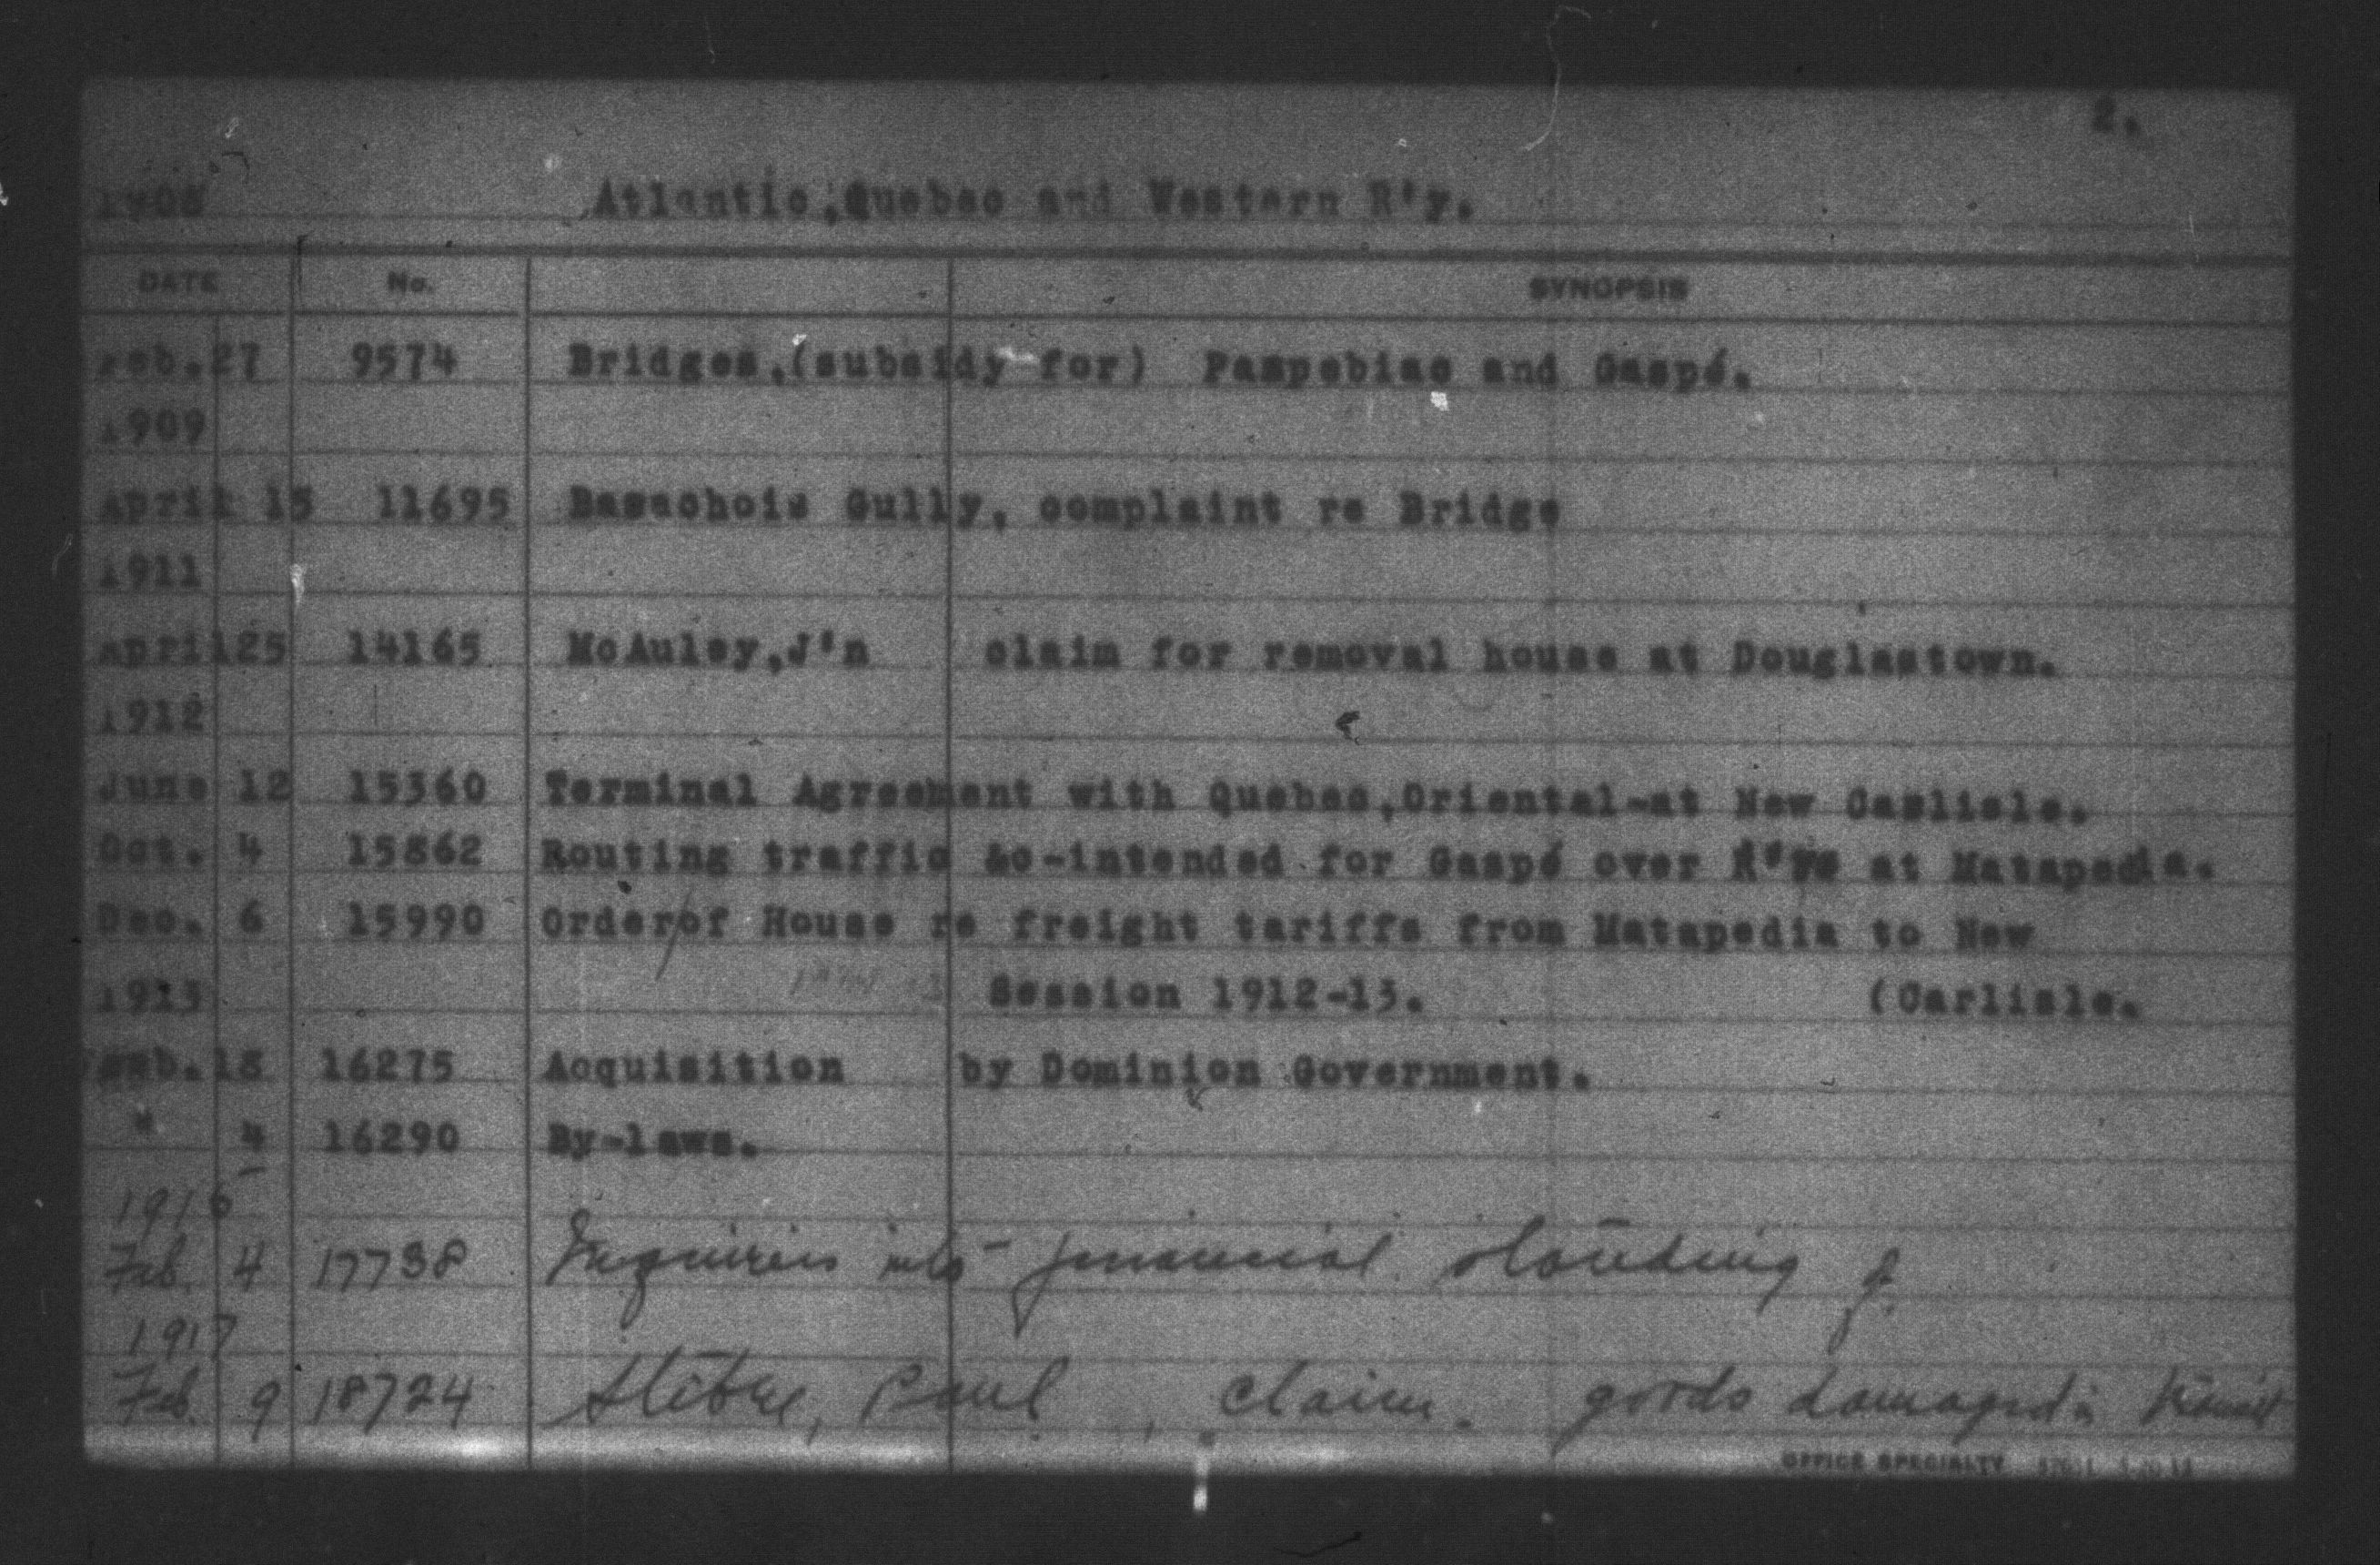 2.
1908 Atlantic,Quebec and Western R'y.
DATE No. SYNOPSIS
Feb.27 9574 Bridges,(subsidy for) Paspebiac and Gaspé.
1909
April 15 11695 Barachois Gully, complaint re Bridge
1911
April25 14165 McAuley,J'n claim for removal house at Douglastown.
1912
June 12 15360 Terminal Agreement with Quebec,Oriental-at New Carlisle.
Oct. 4 15862 Routing traffic &c-intended for Gaspé over R'ys at Matapedia.
Dec. 6 15990 Order/of House re freight tariffs from Matapedia to New
1913 Session 1912-13. (Carlisle.
Feb.18 16275 Acquisition by Dominion Government.
" 4 16290 By-laws.
1915
Feb. 4 17738 Inquiries into financial standing of
1917
Feb. 9 18724 Paul, claim. goods damaged in transit
OFFICE SPECIALTY